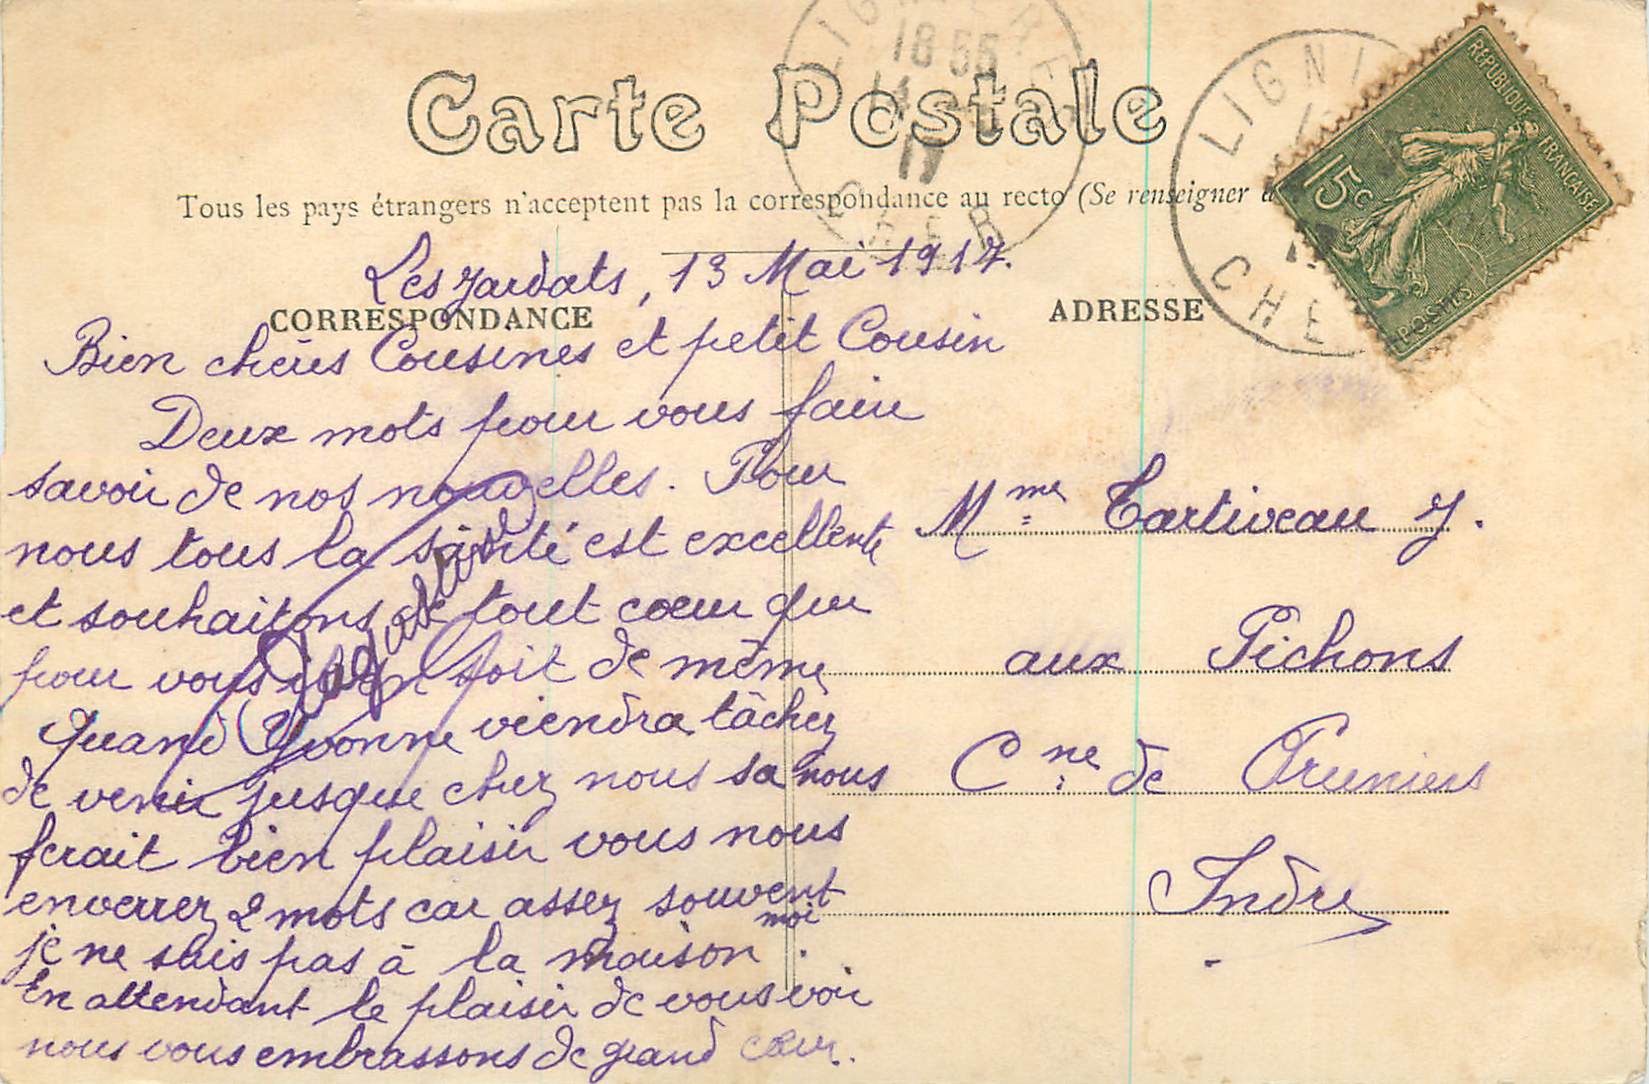 Carte Postale
Tous les pays étrangers n'acceptent pas la correspondance au recto (Se renseigner
LIGNIERES
18 55
14
17
CHER
LIGNI
CHE
REPUBLIQUE FRANÇAISE
15c
POSTES
13 Mai 1917.
CORRESPONDANCE
ADRESSE
Bien chères Cousines et petit Cousin
Deux mots pour vous faire
savoir de nos nouvelles. Pour
nous tous la santé est excellente
et souhaitons de tout cœur que
pour vous il en soit de même
Quand Yvonne viendra tâchez
de venir jusque chez nous sa nous
ferait bien plaisir vous nous
enverrez 2 mots car assez souvent
moi
je ne suis pas à la maison.
En attendant le plaisir de vous voir
nous vous embrassons de grand cœur.
Mme Tartiveau J.
aux Pichons
Cne de Pruniers
Indre